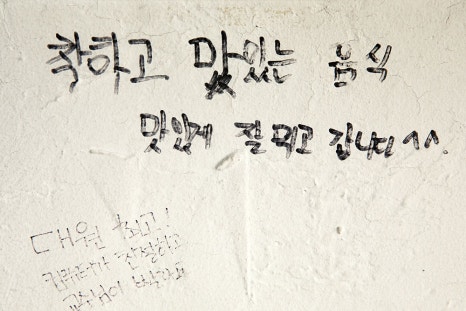 착하고 맛있는 음식
맛있게 잘 먹고 갑니다 ^^.
대원 최고!
친절하고